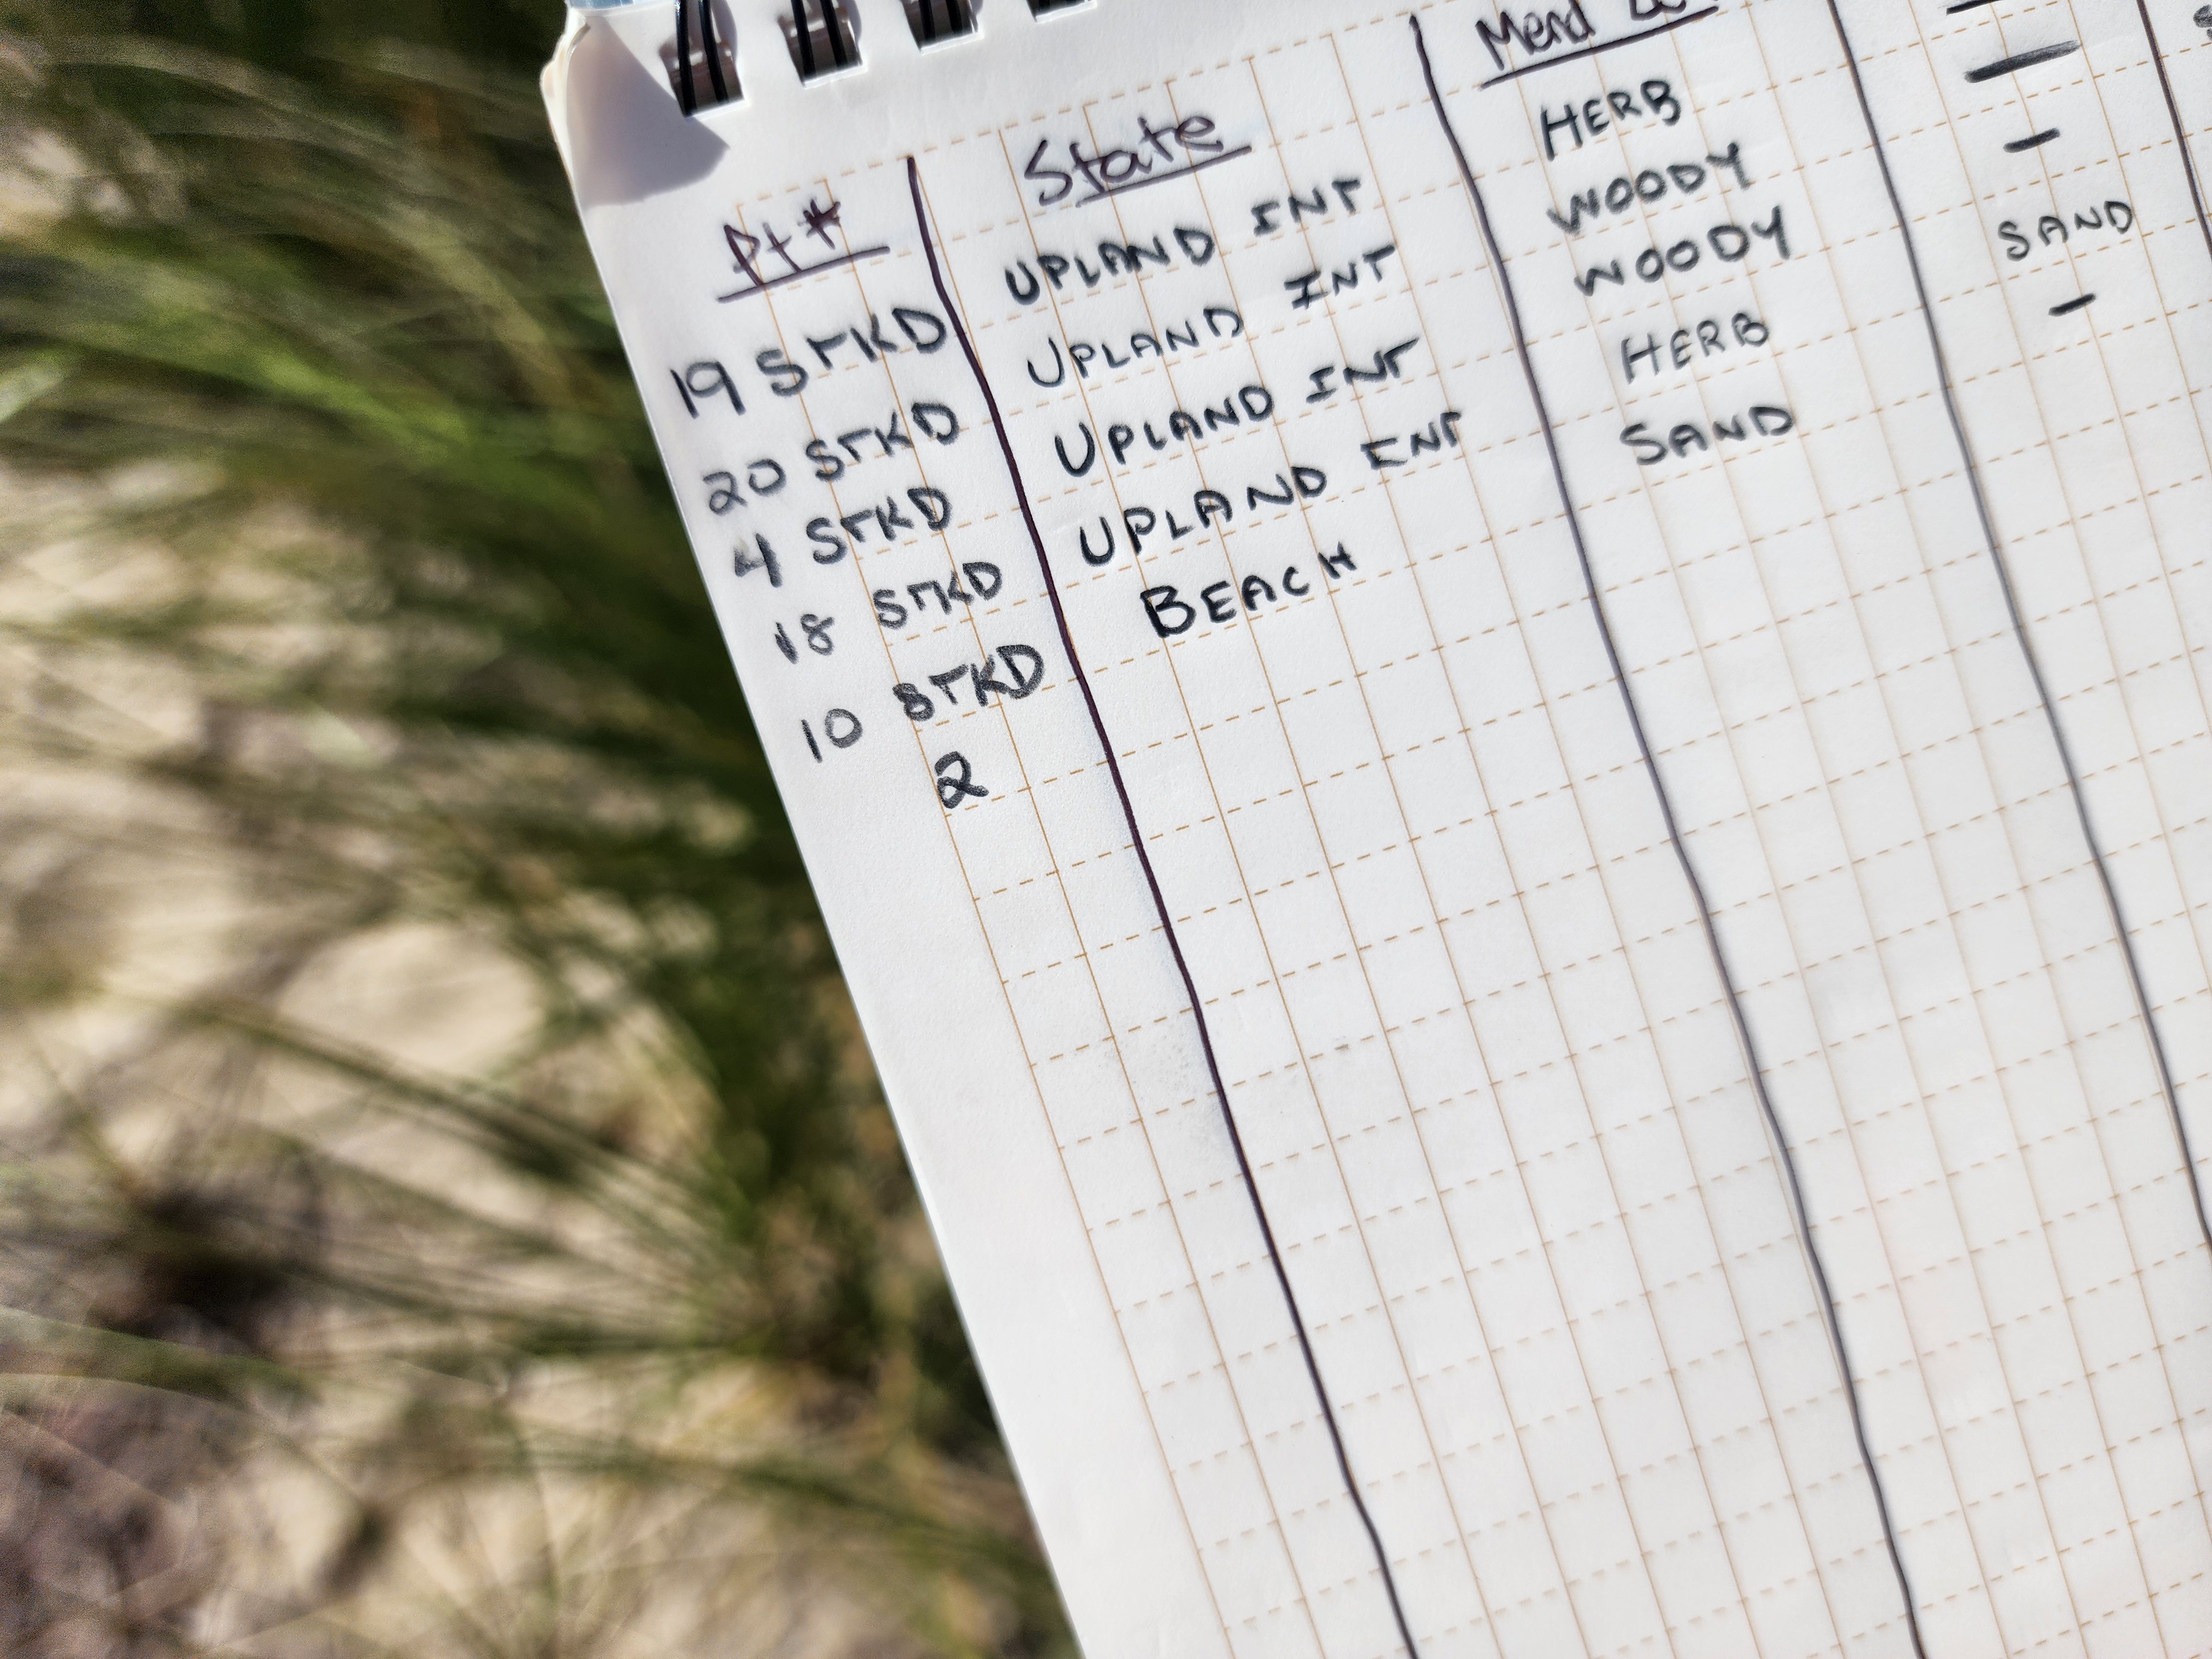 Pt # State Mend
19 STKD UPLAND INT HERB —
20 STKD UPLAND INT WOODY —
4 STKD UPLAND INT WOODY —
18 STKD UPLAND INT HERB SAND
10 STKD BEACH SAND —
2